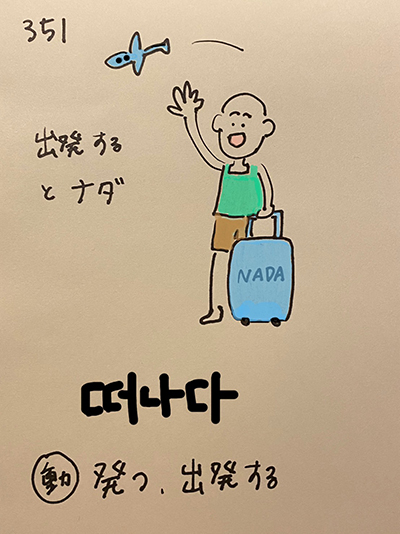 351
出発する
とナダ
NADA
떠나다
動 発つ、出発する